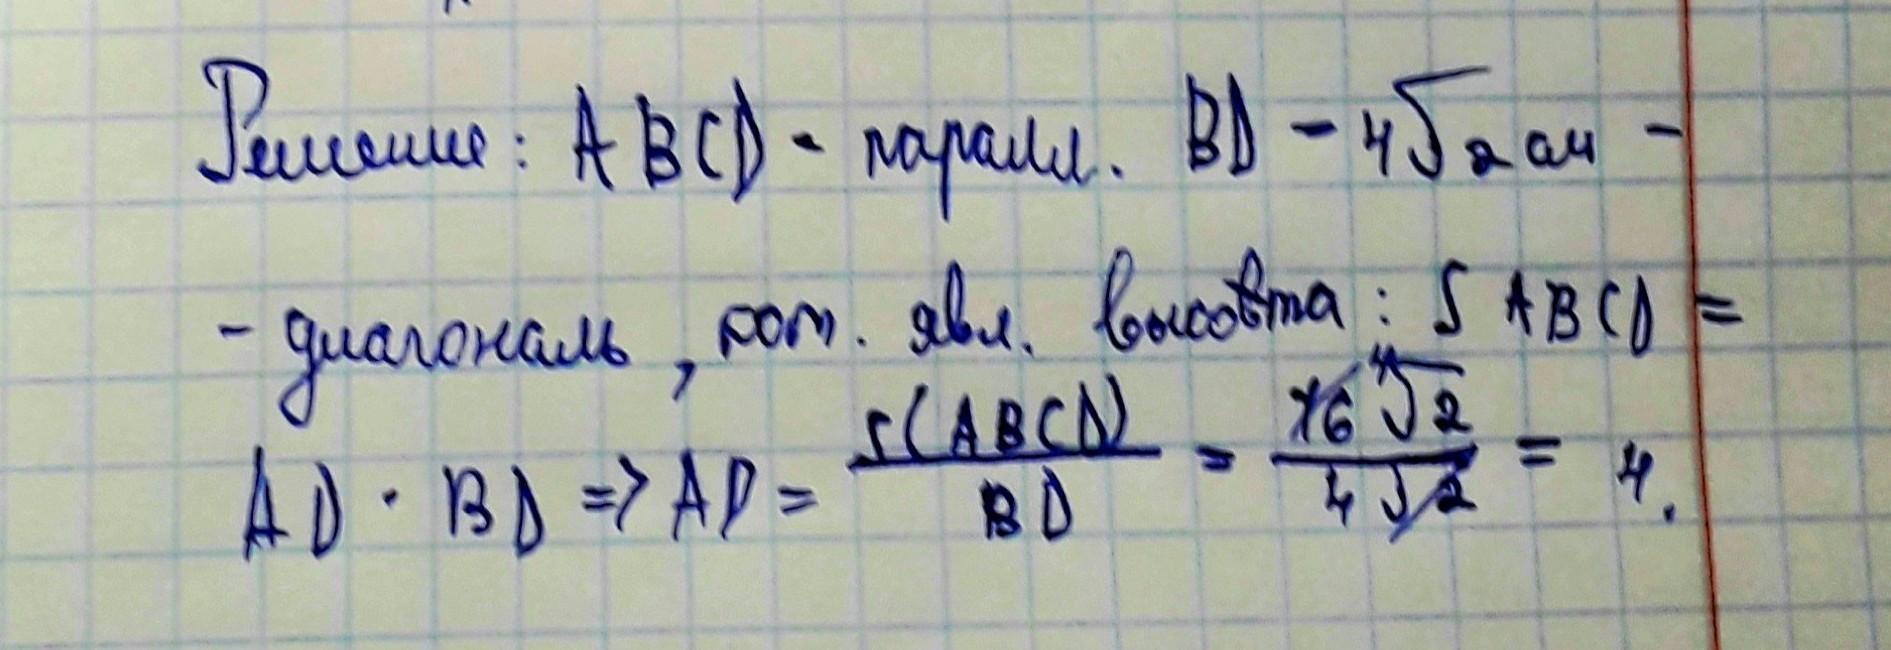 Решение: ABCD - паралл. BD - 4√2 см -
- диагональ, кот. явл. высота: S ABCD =
AD · BD => AD = S(ABCD)/BD = 16√2/4√2 = 4.